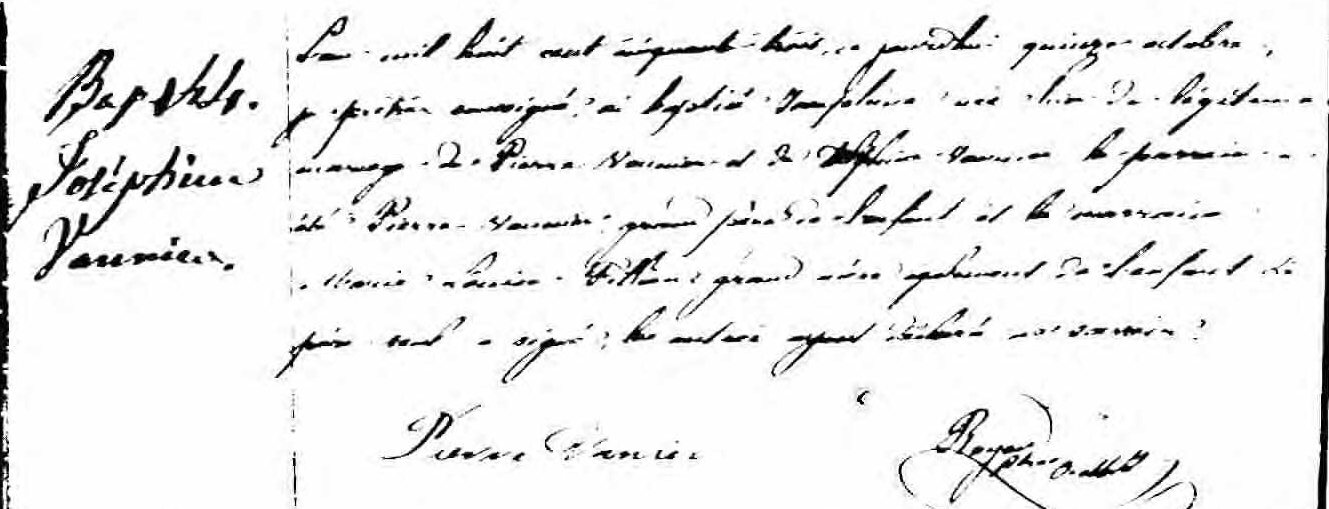 Baptême.
Joséphine
Vannier.
L'an mil huit cent cinquante trois, ce jourd'hui quinze octobre,
je prêtre soussigné, ai baptisé Joséphine née hier de légitime
mariage de Pierre Vannier et de Vannier le parrain a
été Pierre Vannier grand père de l'enfant et la marraine
Marie Louise grand mère également de l'enfant Le
père seul a signé, les autres ayant déclaré ne savoir.
Pierre Vanier